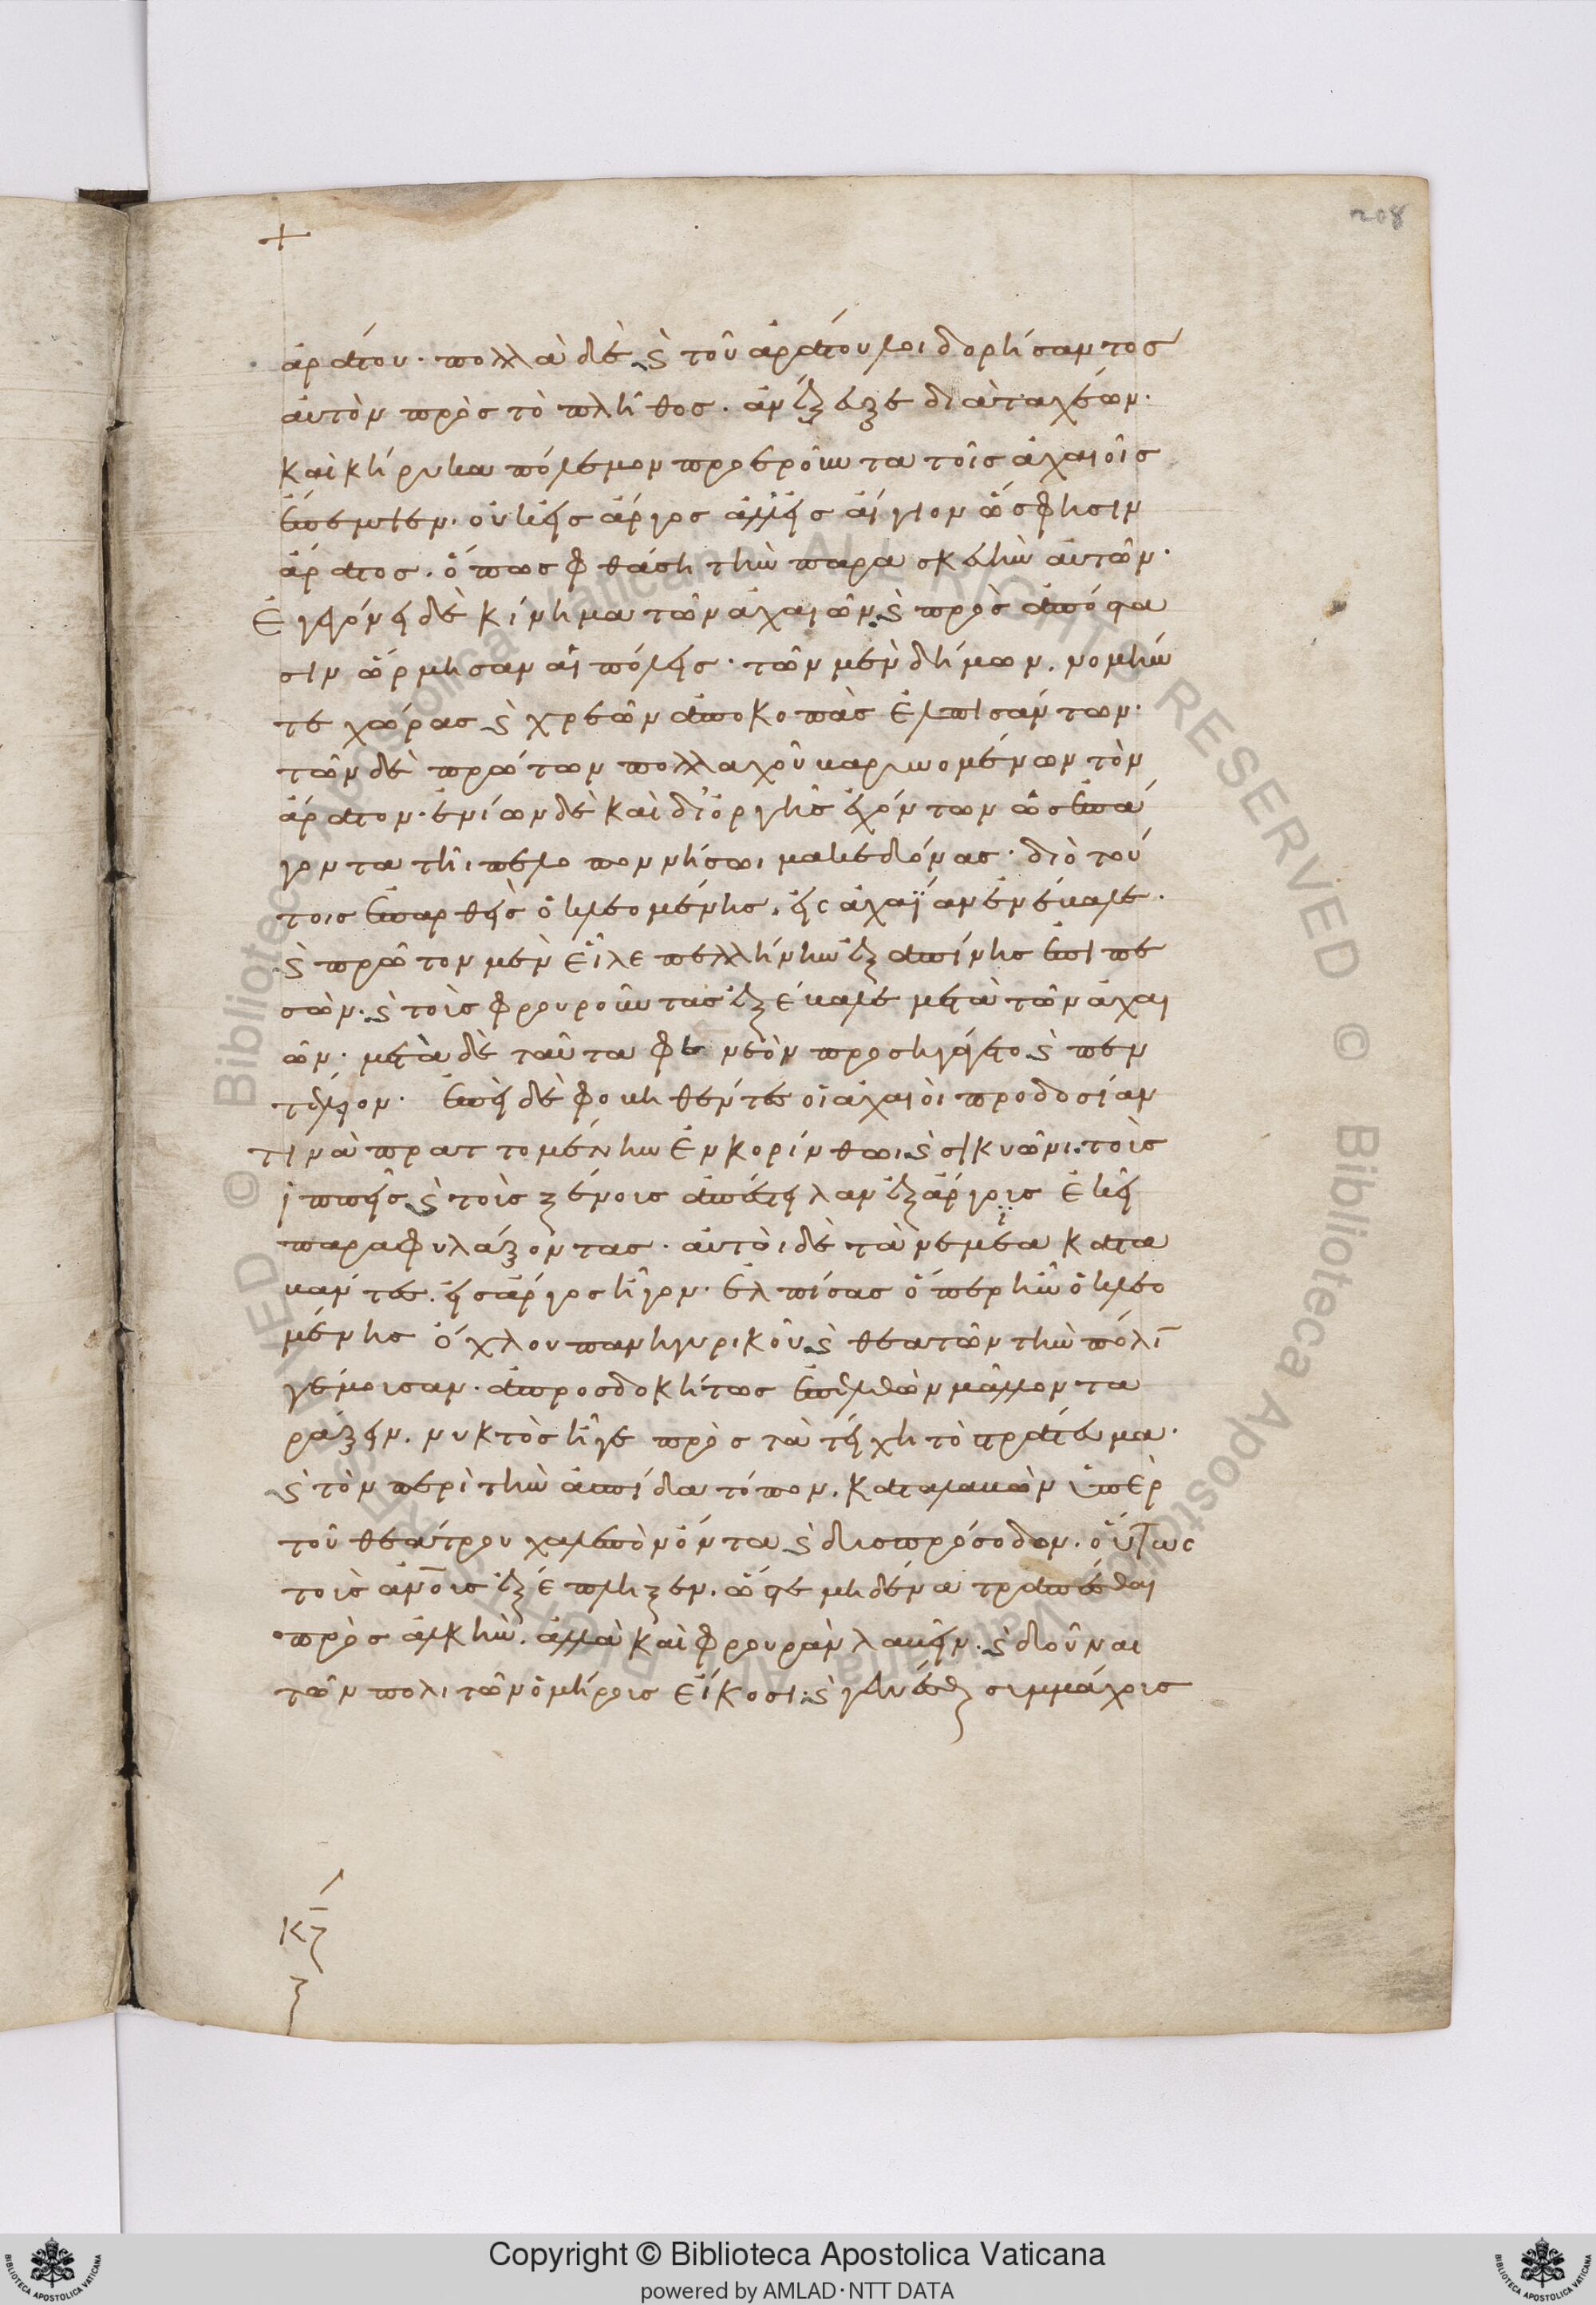 208
ἀράτου· πολλὰ δὲ καὶ τοῦ ἀράτου λοιδορήσαντος
αὐτὸν πρὸς τὸ πλῆθος. ἀνέζευξε διαταχέων·
καὶ κήρυκα πόλεμον προεροῦντα τοῖς ἀχαιοῖς
ἔπεμψεν. οὐκ εἰς ἄργος ἀλλ' εἰς αἴγιον ὥς φησιν
ἄρατος. ὅπως φθάσῃ τὴν παρασκευὴν αὐτῶν·
Ἐγεγόνει δὲ κίνημα τῶν ἀχαιῶν. καὶ πρὸς ἀπόστα
σιν ὥρμησαν αἱ πόλεις· τῶν μὲν δήμων, νομήν
τε χώρας καὶ χρεῶν ἀποκοπὰς ἐλπισάντων·
τῶν δὲ πρώτων πολλαχοῦ βαρυνομένων τὸν
ἄρατον· ἐνίων δὲ καὶ δι' ὀργῆς ἐχόντων ὡς ἐπά
γοντα τῆι πελοποννήσωι μακεδόνας· διὸ τού
τοις ἐπαρθεὶς ὁ κλεομένης, εἰς ἀχαΐαν ἐνέβαλε·
καὶ πρῶτον μὲν εἷλε πελλήνην ἐξ ἀπίνης ἐπιπε
σὼν. καὶ τοὺς φρουροῦντας ἐξέβαλε μετὰ τῶν ἀχαι
ῶν· μετὰ δὲ ταῦτα φενεὸν προσηγάγετο καὶ πεν
τέλειον· ἐπεὶ δὲ φοβηθέντες οἱ ἀχαιοὶ προδοσίαν
τινὰ πραττομένην ἐν κορίνθωι καὶ σικυῶνι. τοὺς
ἱππεῖς καὶ τοὺς ξένους ἀπέστειλαν ἐξ ἄργους ἐκεῖ
παραφυλάξοντας· αὐτοὶ δὲ τὰ νέμεια κατα
βάντες. εἰς ἄργος ἦγον· ἐλπίσας ὅπερ ἦν ὁ κλεο
μένης ὄχλου πανηγυρικοῦ καὶ θεατῶν τὴν πόλιν
γέμουσαν· ἀπροσδοκήτως ἐπελθὼν μᾶλλον τα
ράξειν. νυκτὸς ἦγε πρὸς τὰ τείχη τὸ στράτευμα·
καὶ τὸν περὶ τὴν ἀσπίδα τόπον. καταλαβὼν ὑπὲρ
τοῦ θεάτρου χαλεπὸν ὄντα καὶ δυσπρόσοδον. οὕτως
τοὺς ἀνους ἐξέπληξεν. ὥστε μηδένα τραπέσθαι
πρὸς ἀλκὴν. ἀλλὰ καὶ φρουρὰν λαβεῖν. καὶ δοῦναι
τῶν πολιτῶν ὁμήρους εἴκοσι. καὶ γενέσθαι συμμάχους
Copyright © Biblioteca Apostolica Vaticana
powered by AMLAD·NTT DATA